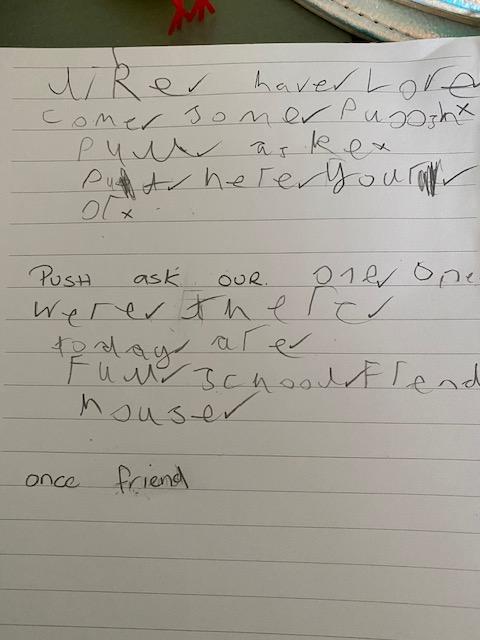 liKe have Love
come some
Pull aske
Put here your
or
PUSH ask our one one
were there
today are
Full school Frend
house
once friend